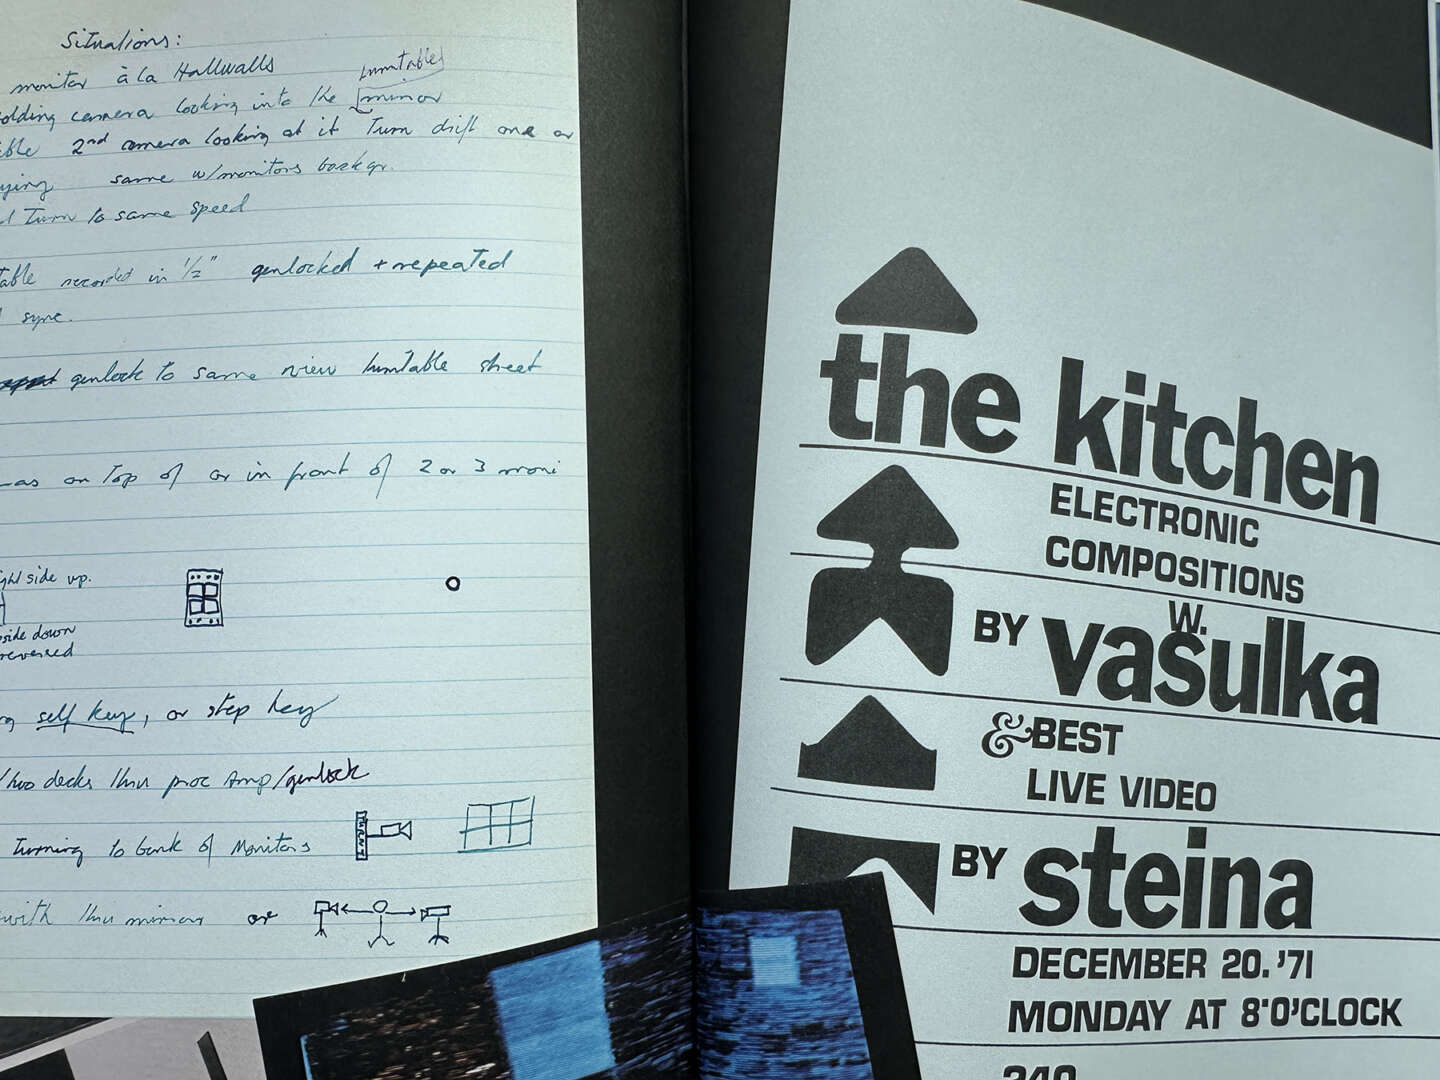 Situations:
monitor à la Hallwalls
turntable
camera looking into the mirror
2nd camera looking at it Turn drift one or
same w/monitors backgr.
Turn to same speed
recorded in 1/2" genlocked + repeated
sync.
genlock to same view turntable street
as on Top of or in front of 2 or 3 moni
side up.
side down
reversed
self key, or step key
two decks thru proc Amp/genlock
Turning to bank of Monitors
with thru mirror or
the kitchen
ELECTRONIC
COMPOSITIONS
W.
BY vašulka
& BEST
LIVE VIDEO
BY steina
DECEMBER 20.'71
MONDAY AT 8'O'CLOCK
240